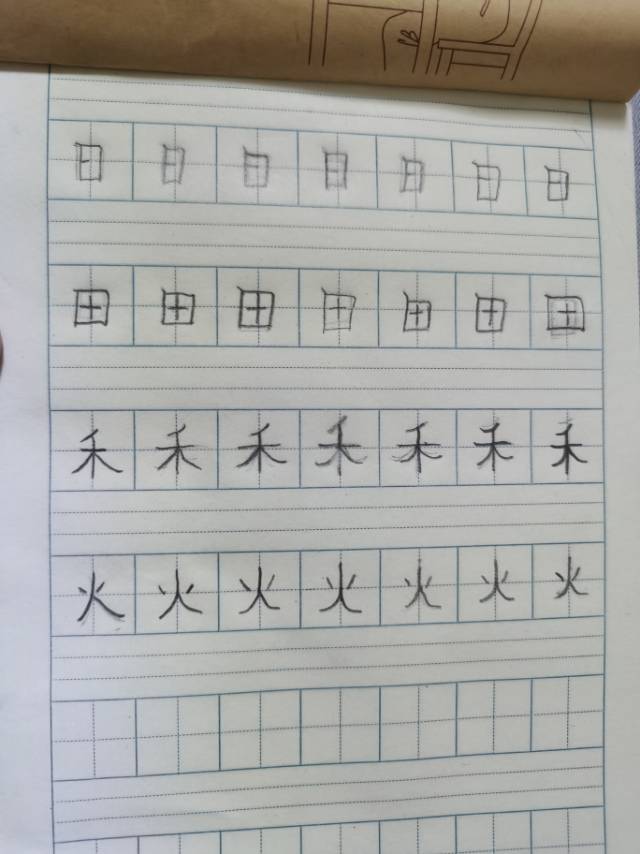 日日日日日日日
田田田田田田田
禾禾禾禾禾禾禾
火火火火火火火